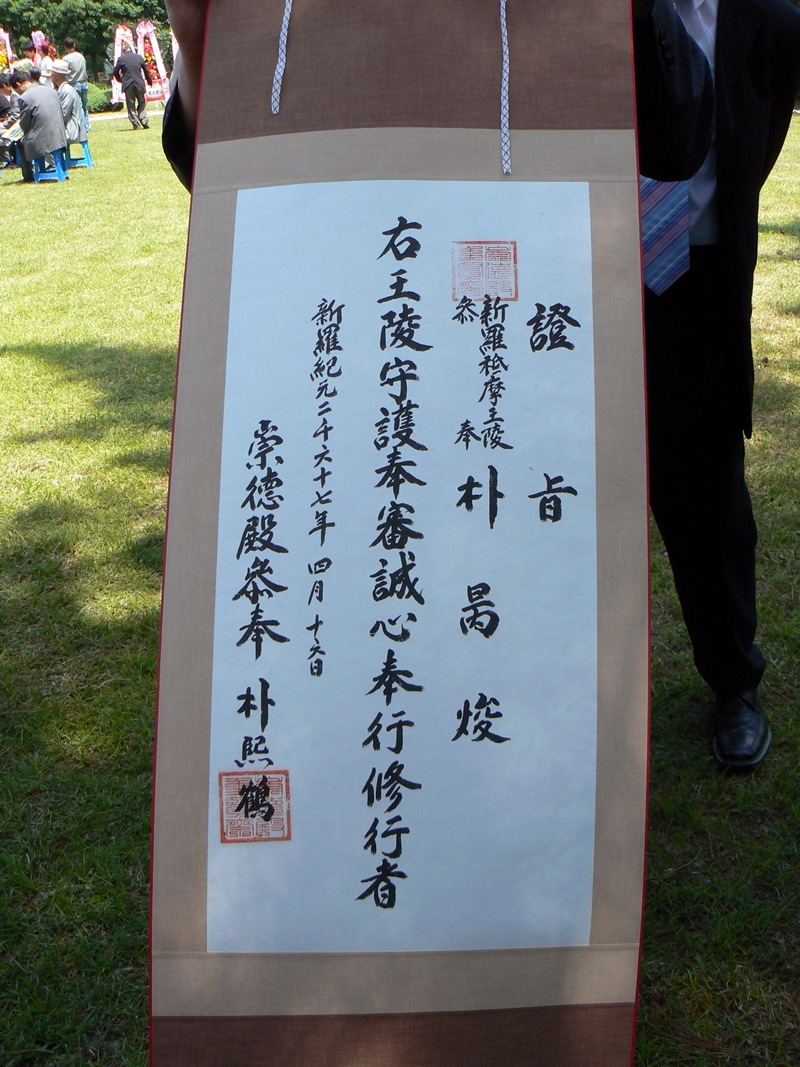 證旨
新羅祗摩王陵
叅奉 朴昺焌
右王陵守護奉審誠心奉行修行者
新羅紀元二千六十七年 四月十六日
崇德殿叅奉 朴熙鶴